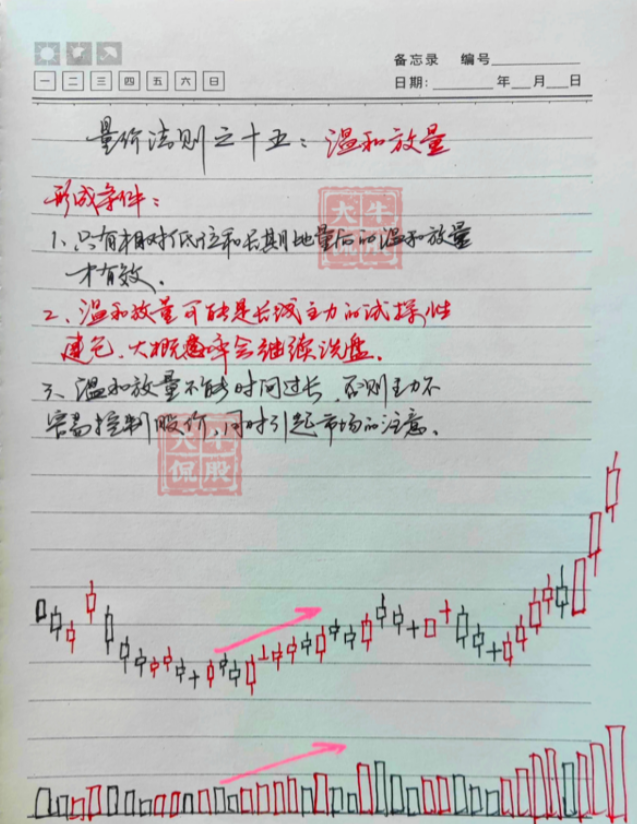 备忘录 编号
一 二 三 四 五 六 日
日期: 年 月 日
量价法则之十五：温和放量
形成条件：
大牛
侃股
1、只有相对低位和长期地量后的温和放量
才有效。
2、温和放量可能是长线主力的试探性
建仓，大概率会继续洗盘。
三、温和放量不能时间过长，否则主力不
容易控制股价，同时引起市场的注意。
大牛
侃股